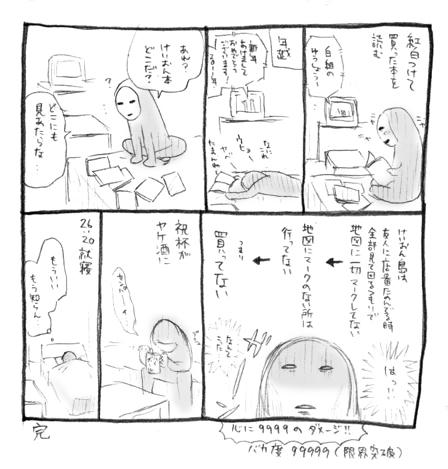 紅白つけて
買った本を
読む
白組の
年越
新年
あけまして
おめでとう
ございます！
あれ？
けいおん本
どこだ？
？
どこにも
見あたらな…
けいおん島は
友人に店番たのんでる時
全部見て回るつもりで
地図に一切マークしてない
↓
地図にマークのない所は
行ってない
↓
つまり
買ってない
はっ…
なんて
こった
ガーン
祝杯が
ヤケ酒に
26：20就寝
もういい
もう知らん…
心に9999のダメージ!!
バカ度 99999（限界突破）
完